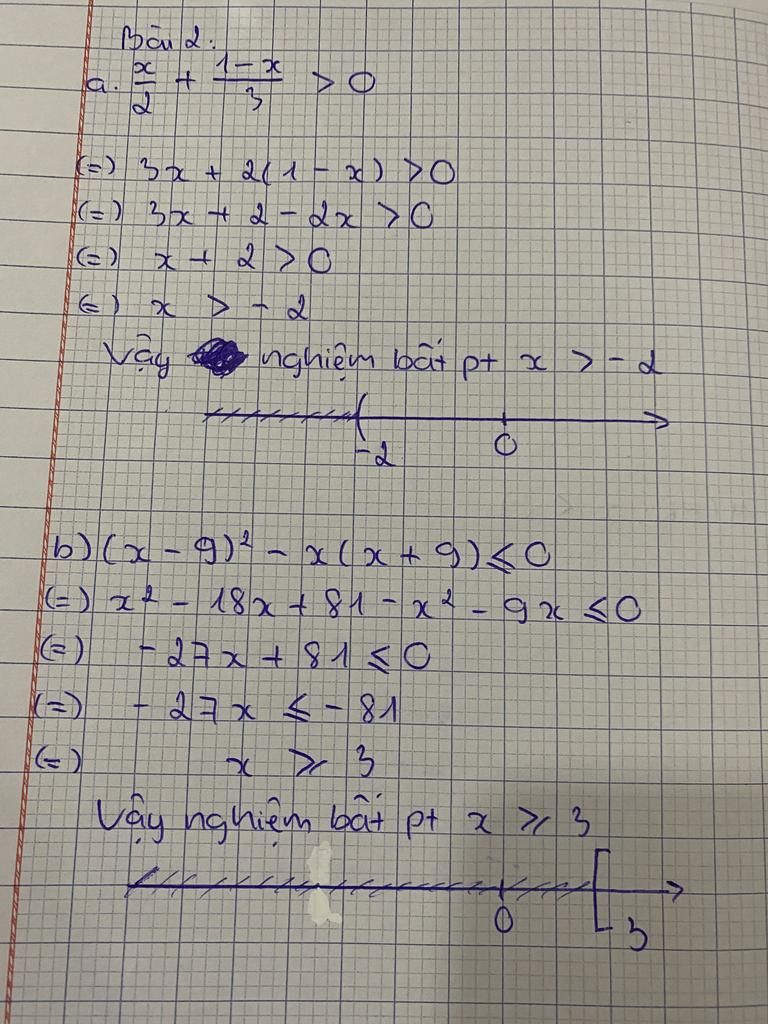 Bài 2:
a. x/2 + (1 - x)/3 > 0
(=) 3x + 2(1 - x) > 0
(=) 3x + 2 - 2x > 0
(=) x + 2 > 0
(=) x > - 2
Vậy nghiệm bất pt x > - 2
-2 0
b) (x - 9)² - x(x + 9) ≤ 0
(=) x² - 18x + 81 - x² - 9x ≤ 0
(=) - 27x + 81 ≤ 0
(=) - 27x ≤ - 81
(=) x ≥ 3
Vậy nghiệm bất pt x ≥ 3
0 3